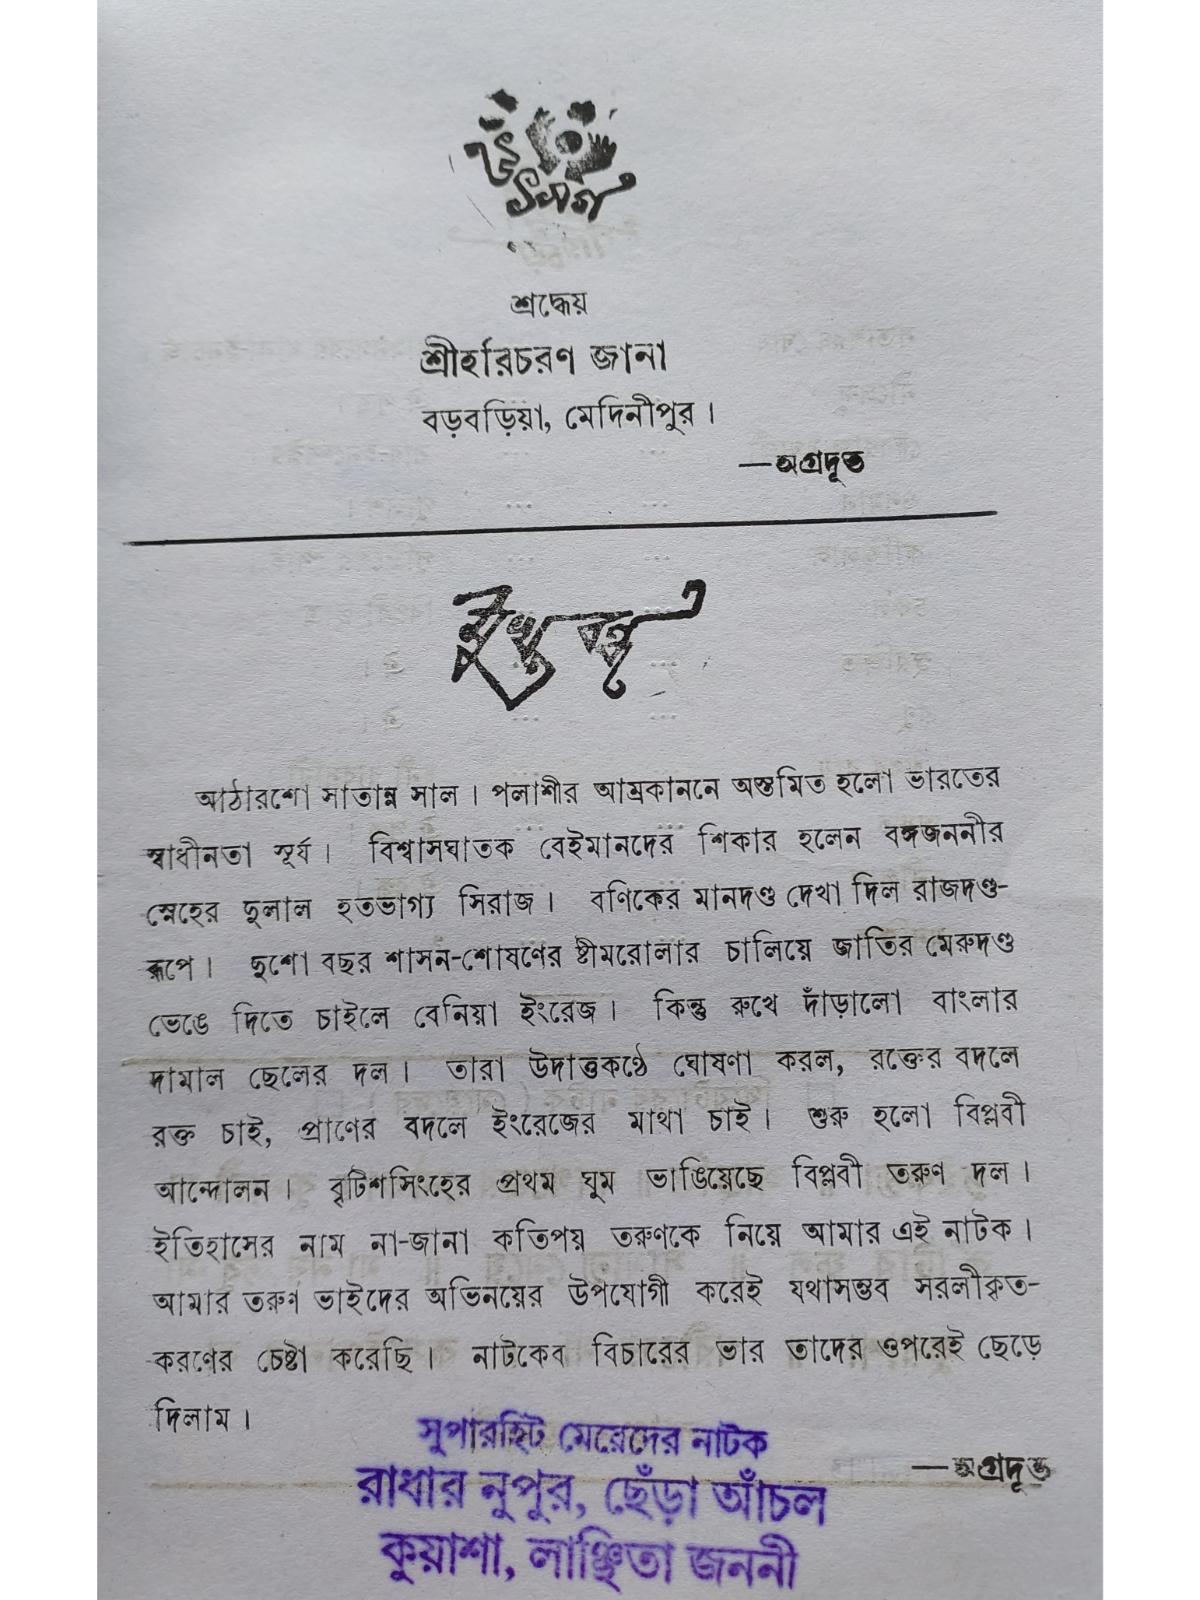 উৎসর্গ
শ্রদ্ধেয়
শ্রীহরিচরণ জানা
বড়বড়িয়া, মেদিনীপুর ।
—অগ্রদূত
মুখবন্ধ
আঠারশো সাতান্ন সাল । পলাশীর আম্রকাননে অস্তমিত হলো ভারতের
স্বাধীনতা সূর্য । বিশ্বাসঘাতক বেইমানদের শিকার হলেন বঙ্গজননীর
স্নেহের দুলাল হতভাগ্য সিরাজ । বণিকের মানদণ্ড দেখা দিল রাজদণ্ড-
রূপে । দুশো বছর শাসন-শোষণের ষ্টীমরোলার চালিয়ে জাতির মেরুদণ্ড
ভেঙে দিতে চাইলে বেনিয়া ইংরেজ । কিন্তু রুখে দাঁড়ালো বাংলার
দামাল ছেলের দল । তারা উদাত্তকণ্ঠে ঘোষণা করল, রক্তের বদলে
রক্ত চাই, প্রাণের বদলে ইংরেজের মাথা চাই । শুরু হলো বিপ্লবী
আন্দোলন । বৃটিশসিংহের প্রথম ঘুম ভাঙিয়েছে বিপ্লবী তরুণ দল ।
ইতিহাসের নাম না-জানা কতিপয় তরুণকে নিয়ে আমার এই নাটক ।
আমার তরুণ ভাইদের অভিনয়ের উপযোগী করেই যথাসম্ভব সরলীকৃত-
করণের চেষ্টা করেছি । নাটকেব বিচারের ভার তাদের ওপরেই ছেড়ে
দিলাম ।
—অগ্রদূত
সুপারহিট মেয়েদের নাটক
রাধার নুপুর, ছেঁড়া আঁচল
কুয়াশা, লাঞ্ছিতা জননী